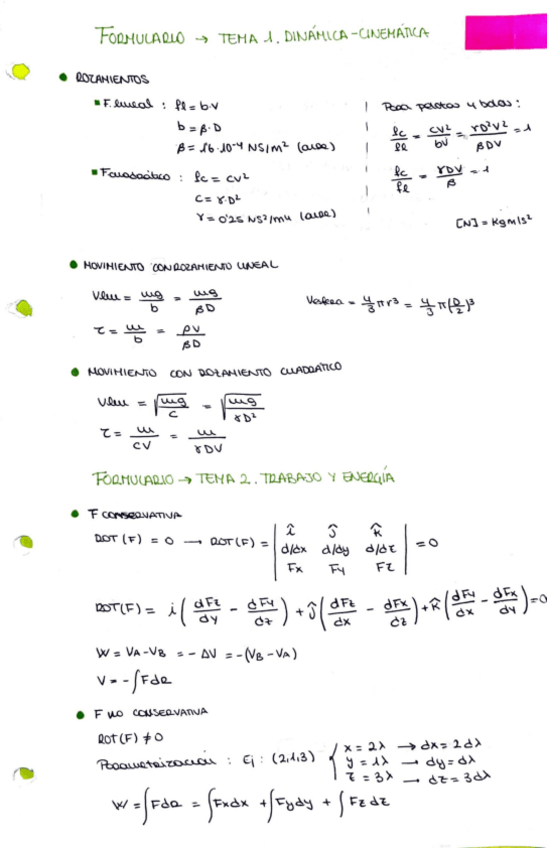 FORMULARIO → TEMA 1. DINÁMICA-CINEMÁTICA
ROZAMIENTOS
F. lineal : fl = b·V
b = β·D
β = 1'6·10⁻⁴ NS/m² (aire)
F cuadrático : fc = CV²
C = γ·D²
γ = 0'25 NS²/m4 (aire)
Para pelotas y bolas :
fc/fl = CV²/bV = γD²V²/βDV = 1
fc/fl = γDV/β = 1
[N] = Kgm/s²
MOVIMIENTO CON ROZAMIENTO LINEAL
Vlim = mg/b = mg/βD
τ = m/b = ρV/βD
Vesfera = 4/3 πr³ = 4/3 π(D/2)³
MOVIMIENTO CON ROZAMIENTO CUADRÁTICO
Vlim = √(mg/C) = √(mg/γD²)
τ = m/CV = m/γDV
FORMULARIO → TEMA 2. TRABAJO Y ENERGÍA
F CONSERVATIVA
ROT (F) = 0 → ROT(F) = | î ĵ k̂ |
| d/dx d/dy d/dz | = 0
| Fx Fy Fz |
ROT(F) = i (dFz/dy - dFy/dz) + ĵ (dFz/dx - dFx/dz) + k̂ (dFy/dx - dFx/dy) = 0
W = VA - VB = - ΔV = -(VB - VA)
V = -∫Fdr
F NO CONSERVATIVA
ROT(F) ≠ 0
Parametrización : Ej : (2,1,3) { x = 2λ → dx = 2dλ
y = 1λ → dy = dλ
z = 3λ → dz = 3dλ
W = ∫Fdr = ∫Fxdx + ∫Fydy + ∫Fzdz